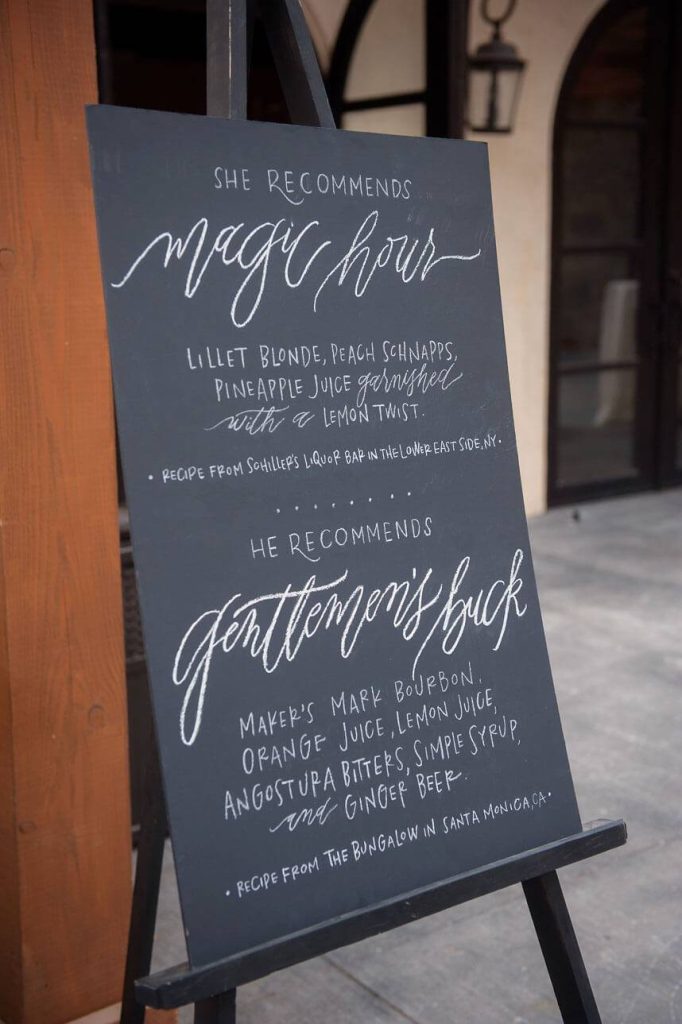 SHE RECOMMENDS
magic hour
LILLET BLONDE, PEACH SCHNAPPS,
PINEAPPLE JUICE garnished
with a LEMON TWIST.
• RECIPE FROM SCHILLER'S LIQUOR BAR IN THE LOWER EAST SIDE, NY •
. . . . . . . .
HE RECOMMENDS
gentlemen's buck
MAKER'S MARK BOURBON,
ORANGE JUICE, LEMON JUICE,
ANGOSTURA BITTERS, SIMPLE SYRUP,
and GINGER BEER.
• RECIPE FROM THE BUNGALOW IN SANTA MONICA, CA •